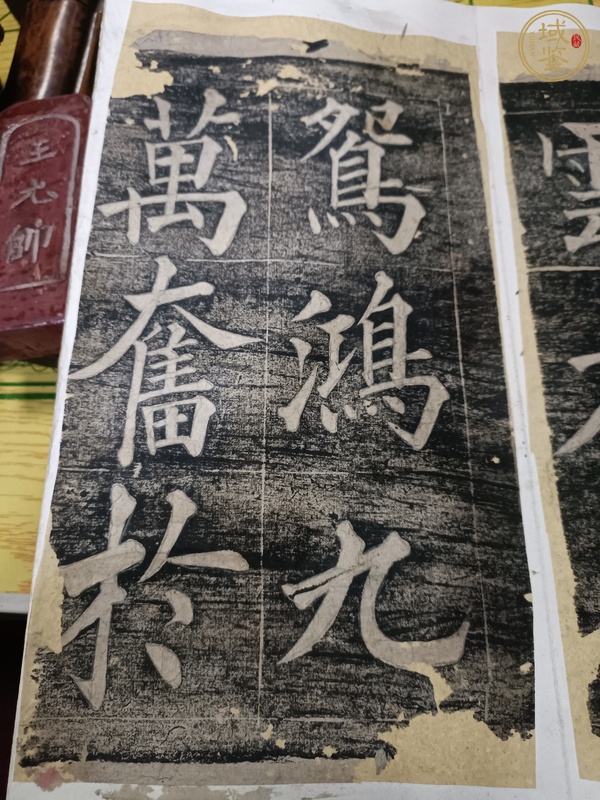 鴛鴻九
萬奮於
王元帥
域鉴